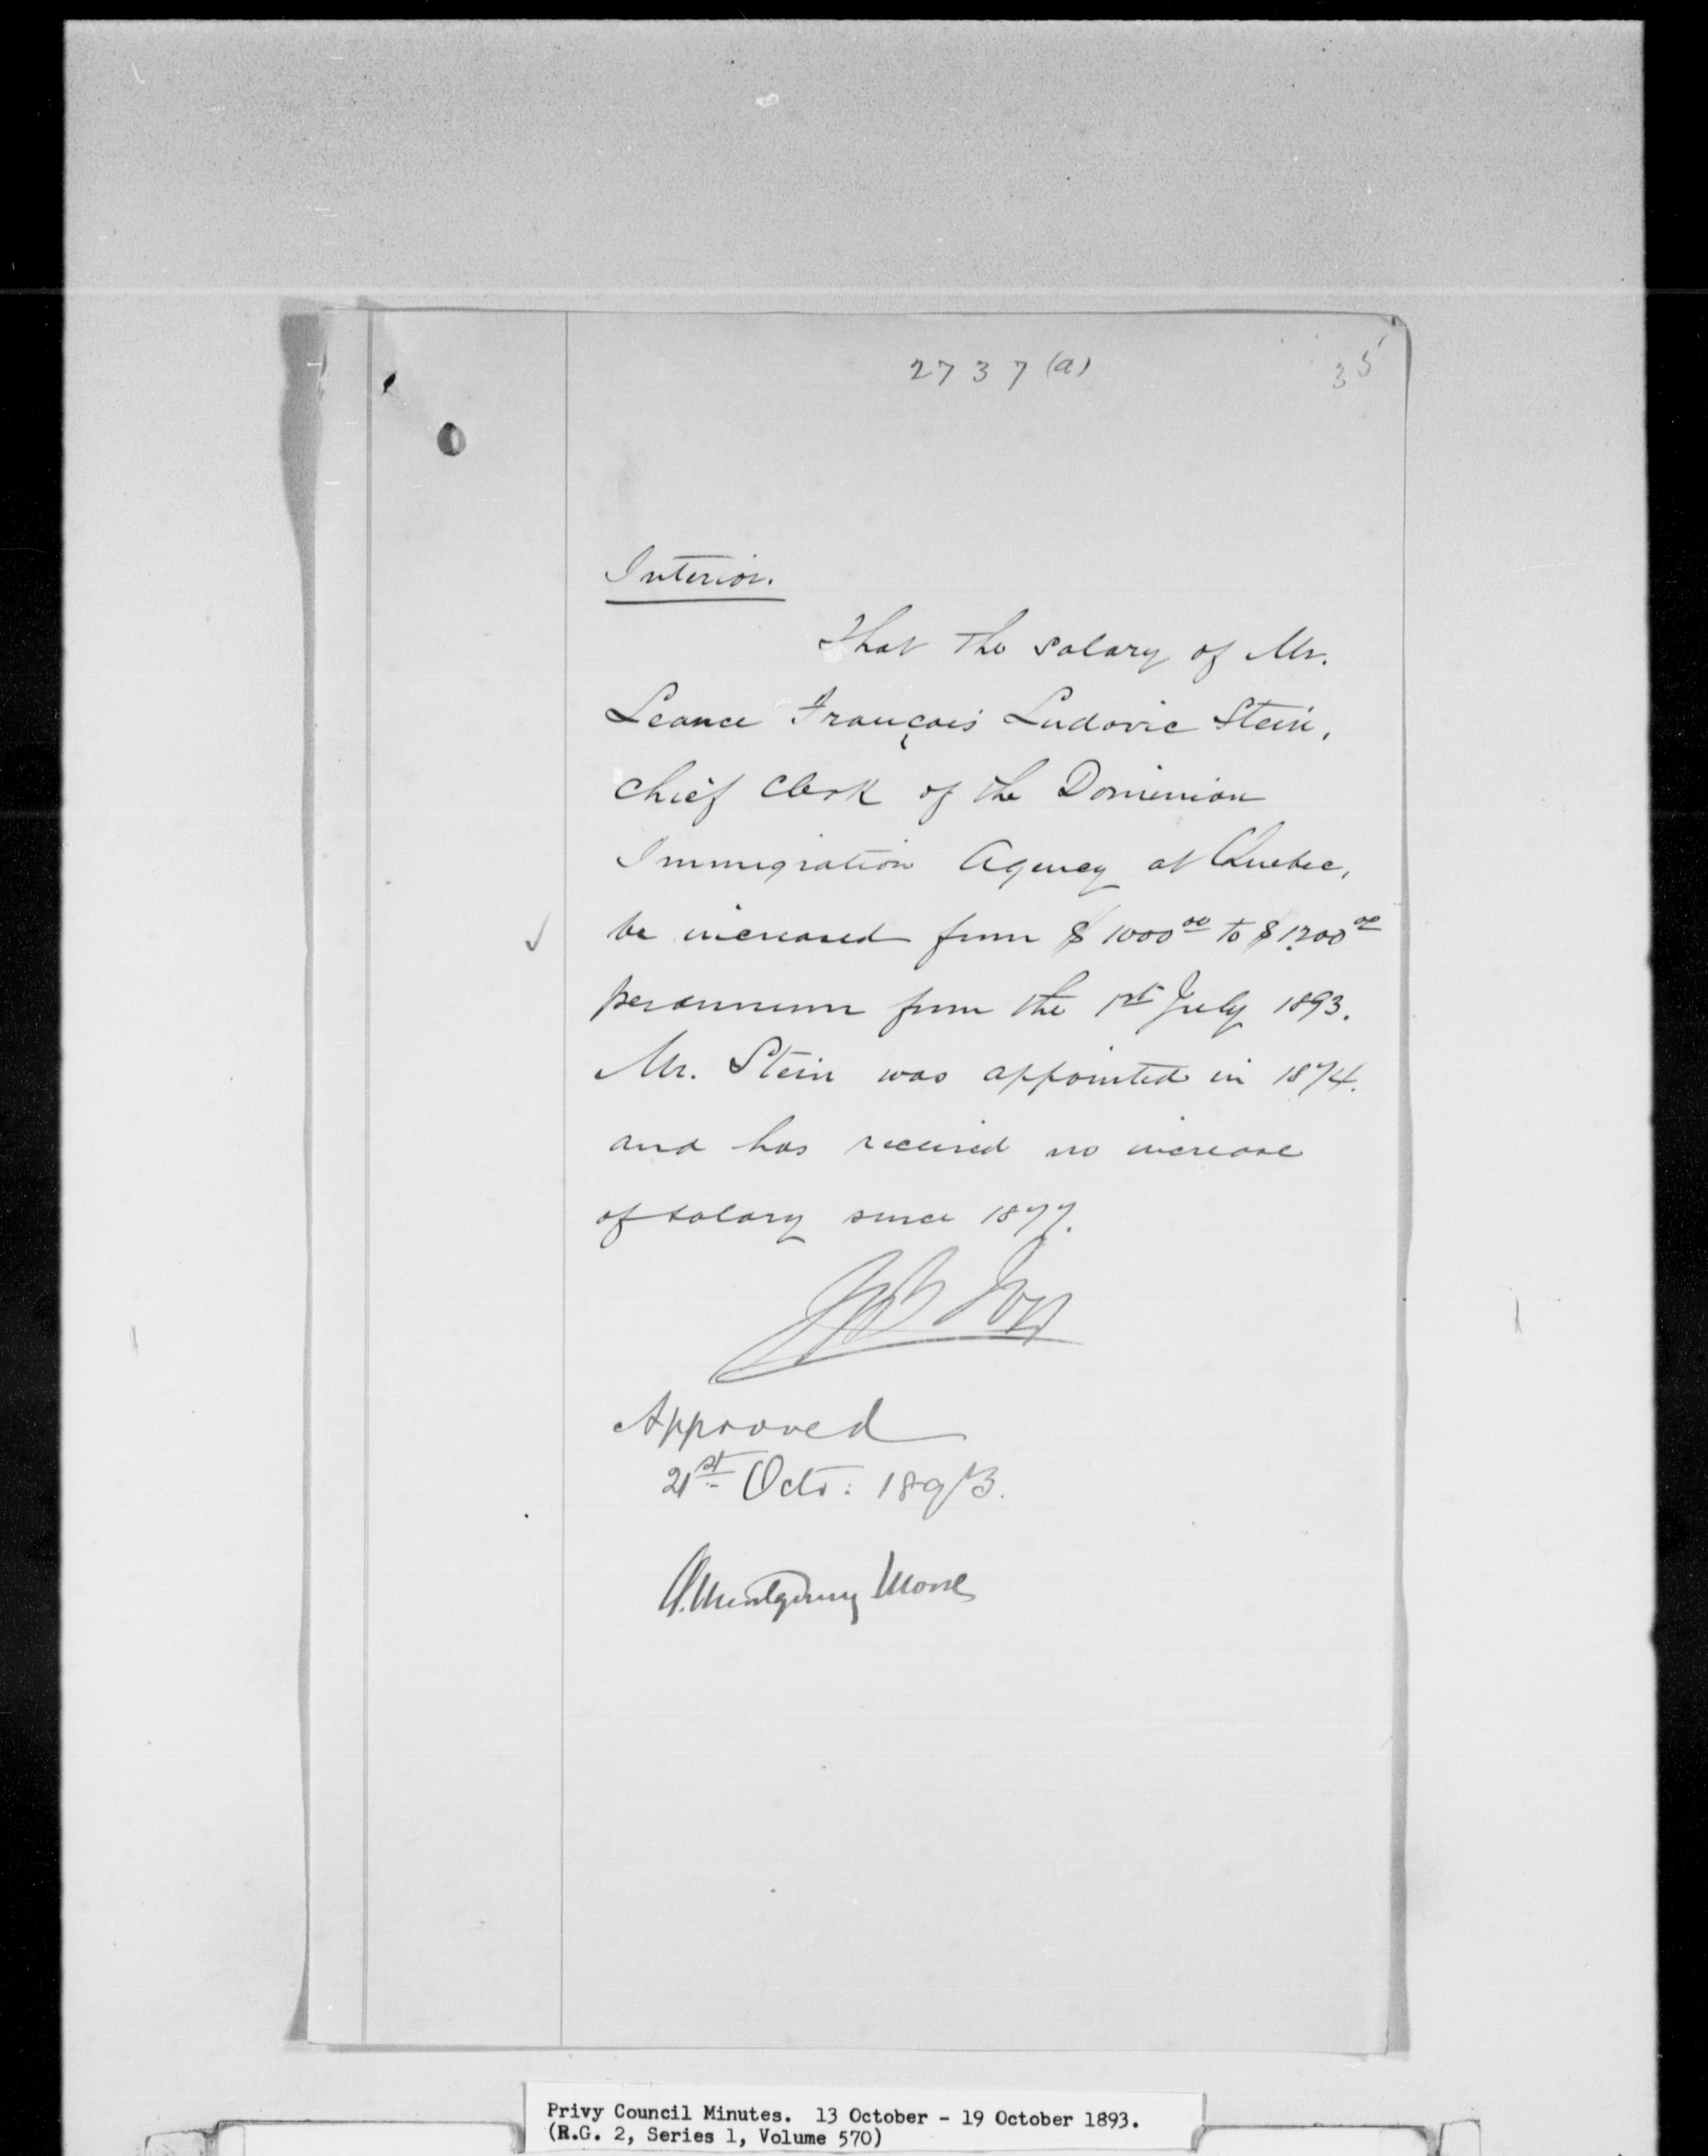 2737 (a)
35
Interior.
That the salary of Mr.
Leance François Ludovic Stein,
Chief Clerk of the Dominion
Immigration Agency at Quebec,
be increased from $1000 00 to $1200 00
per annum from the 1st July 1893.
Mr. Stein was appointed in 1874.
and has received no increase
of salary since 1877.
Approved
21st Octr: 1893.
A. Montgomery Moore
Privy Council Minutes. 13 October - 19 October 1893.
(R.G. 2, Series 1, Volume 570)